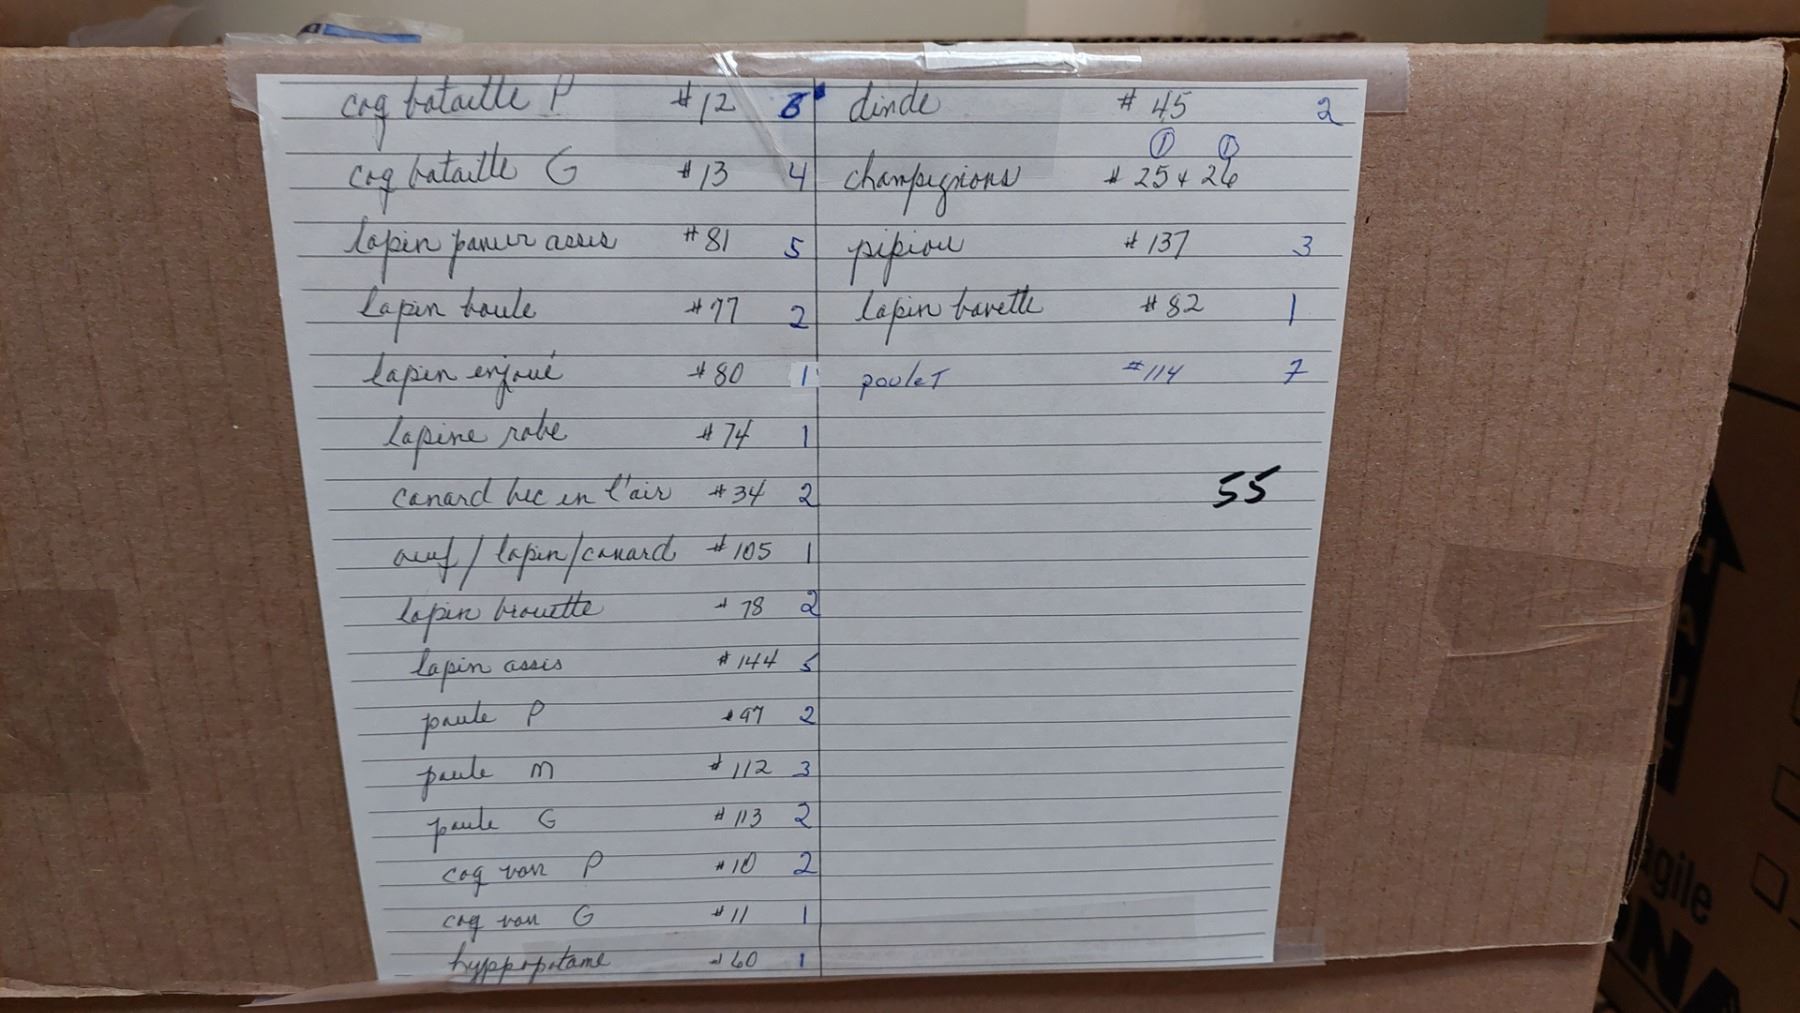 coq bataille P #12 6
coq bataille G #13 4
lapin panier assis #81 5
lapin boule #77 2
lapin enjoué #80 1
lapine robe #74 1
canard bec en l'air #34 2
oeuf / lapin / canard #105 1
lapin brouette #78 2
lapin assis #144 5
poule P #97 2
poule M #112 3
poule G #113 2
coq van P #10 2
coq van G #11 1
hyppopotame #60 1
dinde #45 2
1 1
champignons # 25 + 26
pipiou #137 3
lapin bavette #82 1
poulet #114 7
55
HAUT
agile